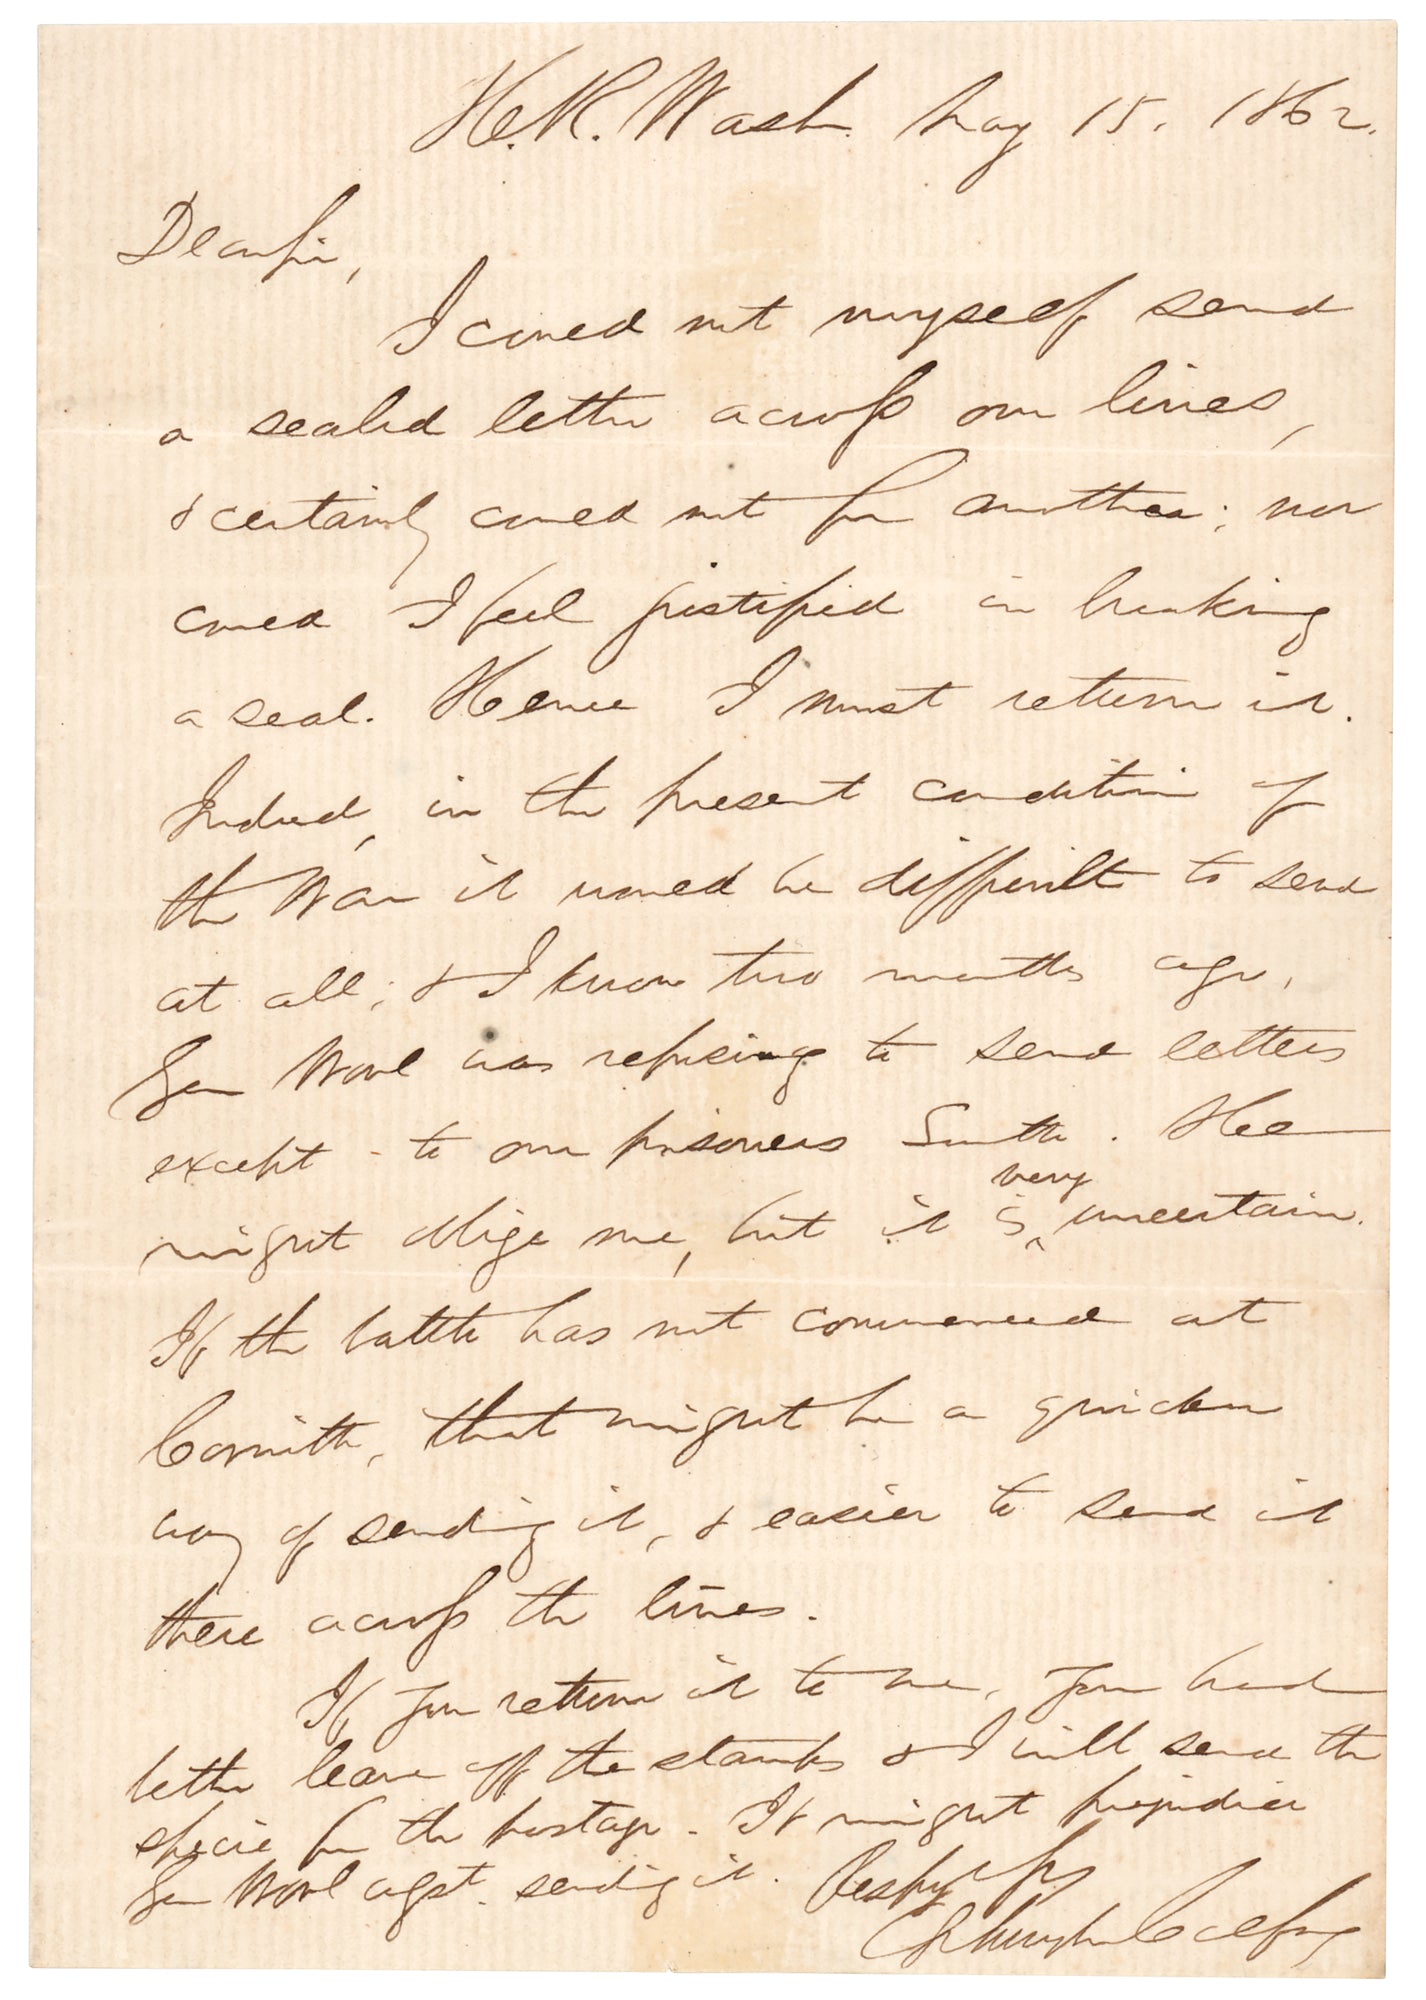 H.R. Wash. May 15. 1862.
Dear Sir,
I could not myself send
a sealed letter across our lines,
& certainly could not for another; nor
could I feel justified in breaking
a seal. Hence I must return it.
Indeed, in the present condition of
the War it would be difficult to send
at all; & I know two months ago,
Gen Wool was refusing to send letters
except - to our prisoners South. He
might oblige me, but it is very uncertain.
If the battle has not commenced at
Corinth, that might be a quicker
way of sending it, & easier to send it
there across the lines.
If you return it to me, you had
better leave off the stamps & I will send the
specie for the postage. It might prejudice
Gen Wool agst. sending it. Respy yrs
Schuyler Colfax